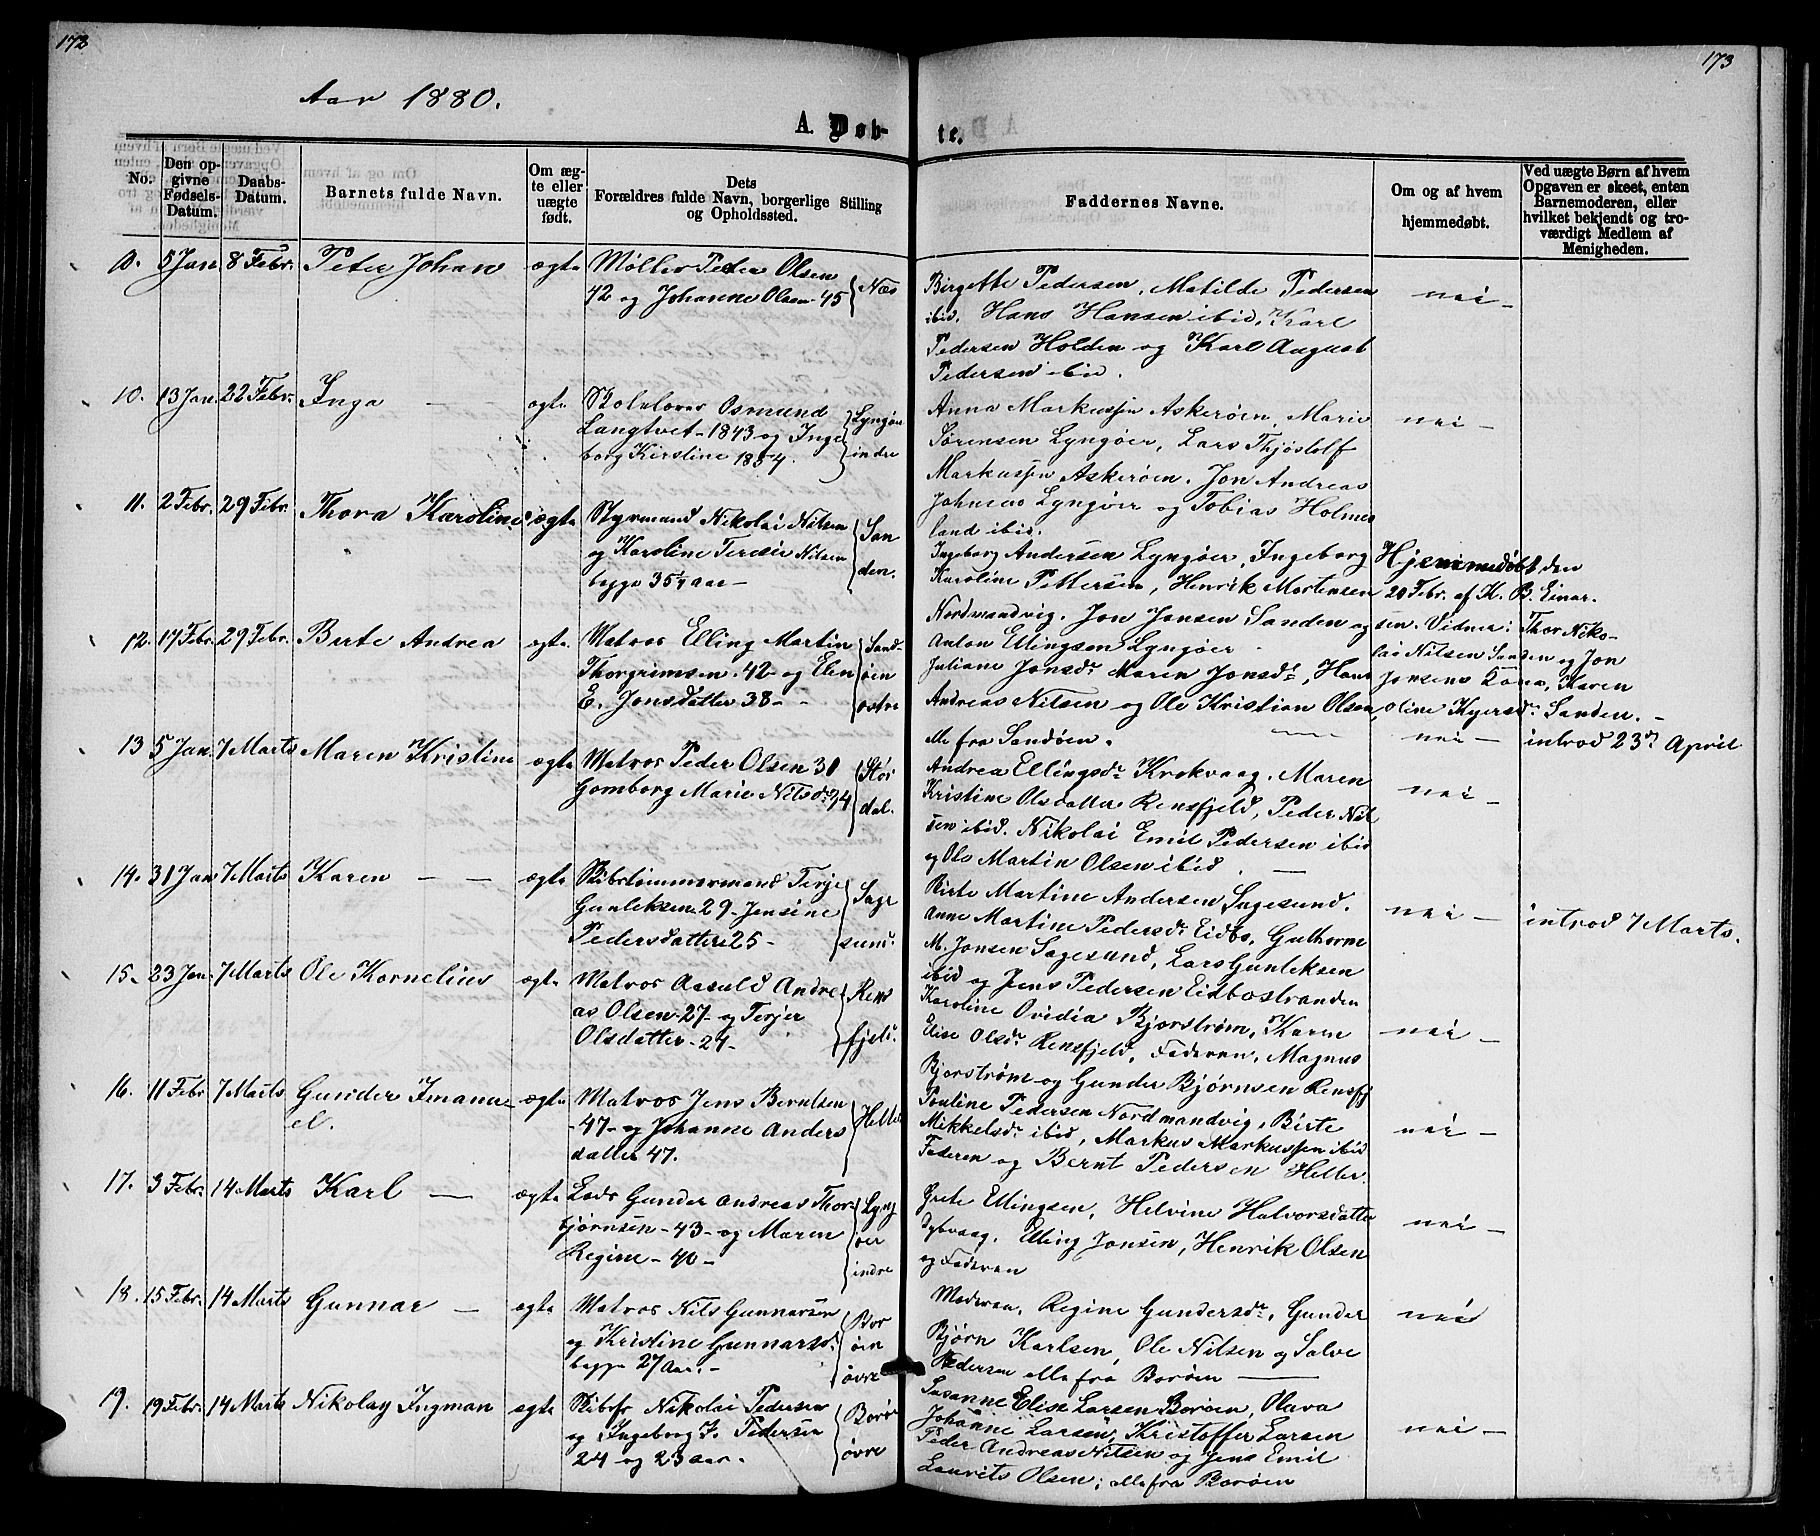 172
173
Aar 1880.
A. Døb-
te.
No.
Den op-
givne
Fødsels-
Datum.
Daabs-
Datum.
Barnets fulde Navn.
Om æg-
te eller
uægte
født.
Dets
Forældres fulde Navn, borgerlige Stilling
og Opholdssted.
Faddernes Navne.
Om og af hvem
hjemmedøbt.
Ved uægte Børn af hvem
Opgaven er skeet, enten
Barnemoderen, eller
hvilket bekjendt og tro-
værdigt Medlem af
Menigheden.
5 Jan 8 Febr. Peter Johan ægte
Møller Peder Olsen
42 og Johanne Olsen 45
Næs
Birgette Pedersen, Matilde Pedersen
ibid. Hans Hansen ibid, Karl
Pedersen Holden og Karl August
Pedersen ibid.
nei -
10. 13 Jan. 22 Febr. Inga - - ægte
Skolelærer Osmund
Langtvet - 1843 og Inge
borg Kirstine 1854.
Lyngøen
indre
Anna Markussen Askerøen, Marie
Sørensen Lyngøer, Lars Thjøstolf
Markussen Askerøen. Jon Andreas
Johnsen Lyngøer og Tobias Holmes
land ibid.
nei -
11. 2 Febr. 29 Febr. Thora Karoline ægte
Styrmand Nikolai Nilsen
og Karoline Nilsen
begge aar -
San
den.
Ingeborg Andersen Lyngøer, Ingeborg
Karoline Pettersen, Henrik Mortensen
Nordmandvig. Jon Jonsen Sanden og
Anton Ellingsen Lyngøer -
Hjemmedøbt den
20 Febr. af K. B. Einar-
sen. Vidner: Thor Niko-
lai Nilsen Sanden og Jon
Jonsens Kona, Karen
Oline Sanden. -
12. 17 Febr. 29 Febr. Berte Andrea ægte.
Matros Elling Martin
Thorgrimsen. 42 - og Elen
E. Jonsdatter 38 - -
Sand-
øen
østre
Juliane Jonsdr Maren Jonsdr, Hans
Andreas Nilsen og Ole Kristian Olsen,
alle fra Sandøen.
nei -
introd 23de April
13 5 Jan. 7 Marts Maren Kristine ægte
Matros Peder Olsen 30
Gomborg Marie Nilsdr 24
Stør
dal.
Andrea Ellingsdr Krokvaag. Maren
Kristine Olsdatter Rensfjeld, Peder Nil
sen ibid. Nikolai Emil Pedersen ibid
og Ole Martin Olsen ibid. -
nei -
14. 31 Jan 7 Marts Karen - - ægte
Skibstømmermand Terje
Gunleksen 29 - Jensine
Pedersdatter 25 -
Sage
sund.
Birte Martine Andersen Sagesund.
Anne Martine Pedersdr Eidbo, Guthorm
M. Jonsen Sagesund, Lars Gunleksen
ibid og Jens Pedersen Eidbostranden
nei -
introd 7 Marts.
15. 23 Jan. 7 Marts Ole Kornelius ægte
Matros Aasuld Andre
as Olsen - 27 - og Terjer
Olsdatter - 24 -
Rens
fjeld.
Karoline Ovidia Bjorstrøm, Karen
Elise Olsdr Rensfjeld, Faderen, Magnus
Bjorstrøm og Gunder Bjørnsen Rensfj
nei -
16. 11 Febr 7 Marts Gunder Imanu-
el. ægte
Matros Jens Berntsen
- 47 - og Johanne Anders
datter 47.
Helle
Pauline Pedersen Nordmandvig, Birte
Mikkelsdr ibid, Markus Markussen ibid
Faderen og Bernt Pedersen Heller
nei -
17. 3 Febr. 14 Marts Karl - ægte
Lods Gunder Andreas Thor-
bjørnsen - 43 - og Maren
Regine - 40 -
Lyng
øer
indre
Grete Ellingsen, Helvine Halvorsdatter
Dybvaag. Elling Jonsen, Henrik Olsen
og Faderen
nei -
18. 15 Febr. 14 Marts Gunnar - ægte
Matros Nils Gunnarsen
og Kristine Gunnarsdr
begge 27 Aar. -
Bor
øen
øvre
Moderen, Regine Gundersdr, Gunder
Bjørn Karlsen, Ole Nilsen og Salve
Pedersen alle fra Borøen -
nei
19. 19 Febr. 14 Marts Nikolay Ingman ægte
Skibsfr Nikolai Pedersen
og Ingeborg J. Pedersen
24 og 23 aar.
Borø
øvre
Susanne Elise Larsen Borøen, Olava
Johanne Larsen, Kristoffer Larsen
Peder Andreas Nilsen og Jens Emil
Laurits Olsen; alle fra Borøen
nei -